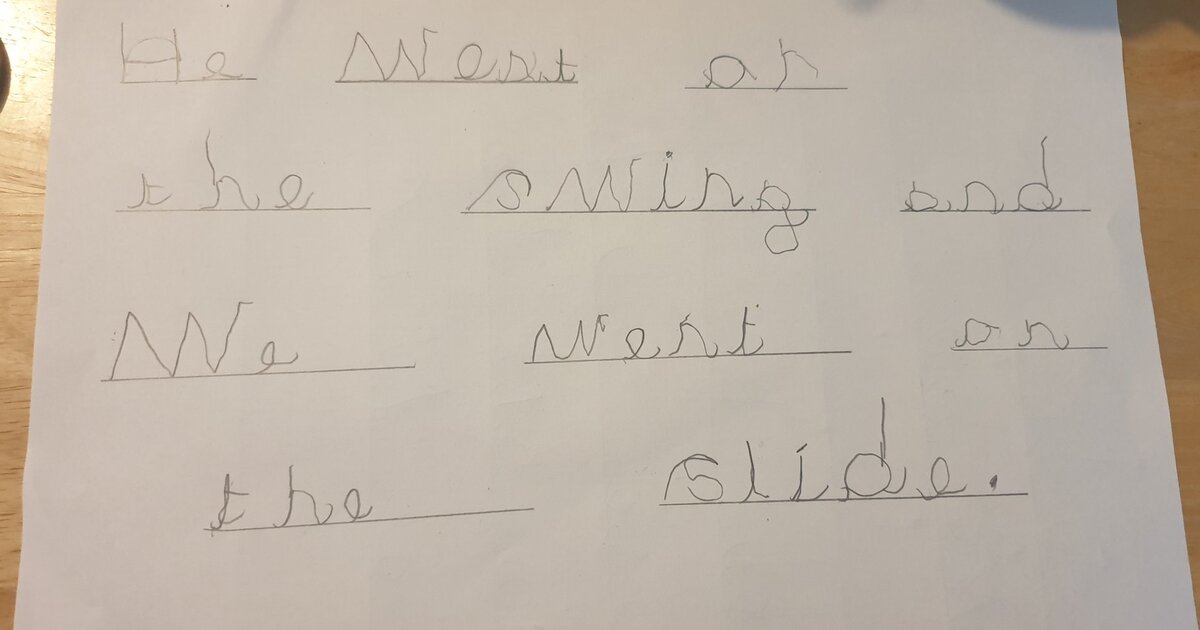 He went on
the swing and
We went on
the slide.